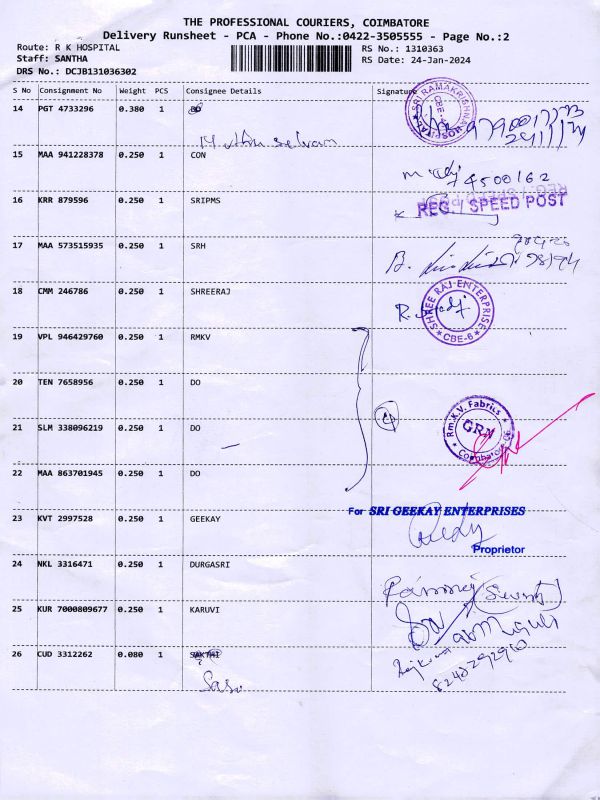 THE PROFESSIONAL COURIERS, COIMBATORE
Delivery Runsheet - PCA - Phone No.:0422-3505555 - Page No.:2
Route: R K HOSPITAL RS No.: 1310363
Staff: SANTHA RS Date: 24-Jan-2024
DRS No.: DCJB131036302
S No Consignment No Weight PCS Consignee Details Signature
14 PGT 4733296 0.380 1 DO
SRI RAMAKRISHNA HOSPITAL CBE-
15 MAA 941228378 0.250 1 CON
16 KRR 879596 0.250 1 SRIPMS
REG. / SPEED POST
17 MAA 573515935 0.250 1 SRH
18 CMM 246786 0.250 1 SHREERAJ
SHREE RAJ ENTERPRISE CBE-6
19 VPL 946429760 0.250 1 RMKV
20 TEN 7658956 0.250 1 DO
4
21 SLM 338096219 0.250 1 DO
Rm.K.V. Fabrics GRN Coimbatore
22 MAA 863701945 0.250 1 DO
For SRI GEEKAY ENTERPRISES
23 KVT 2997528 0.250 1 GEEKAY
Proprietor
24 NKL 3316471 0.250 1 DURGASRI
25 KUR 7000809677 0.250 1 KARUVI
26 CUD 3312262 0.080 1 SAKTHI